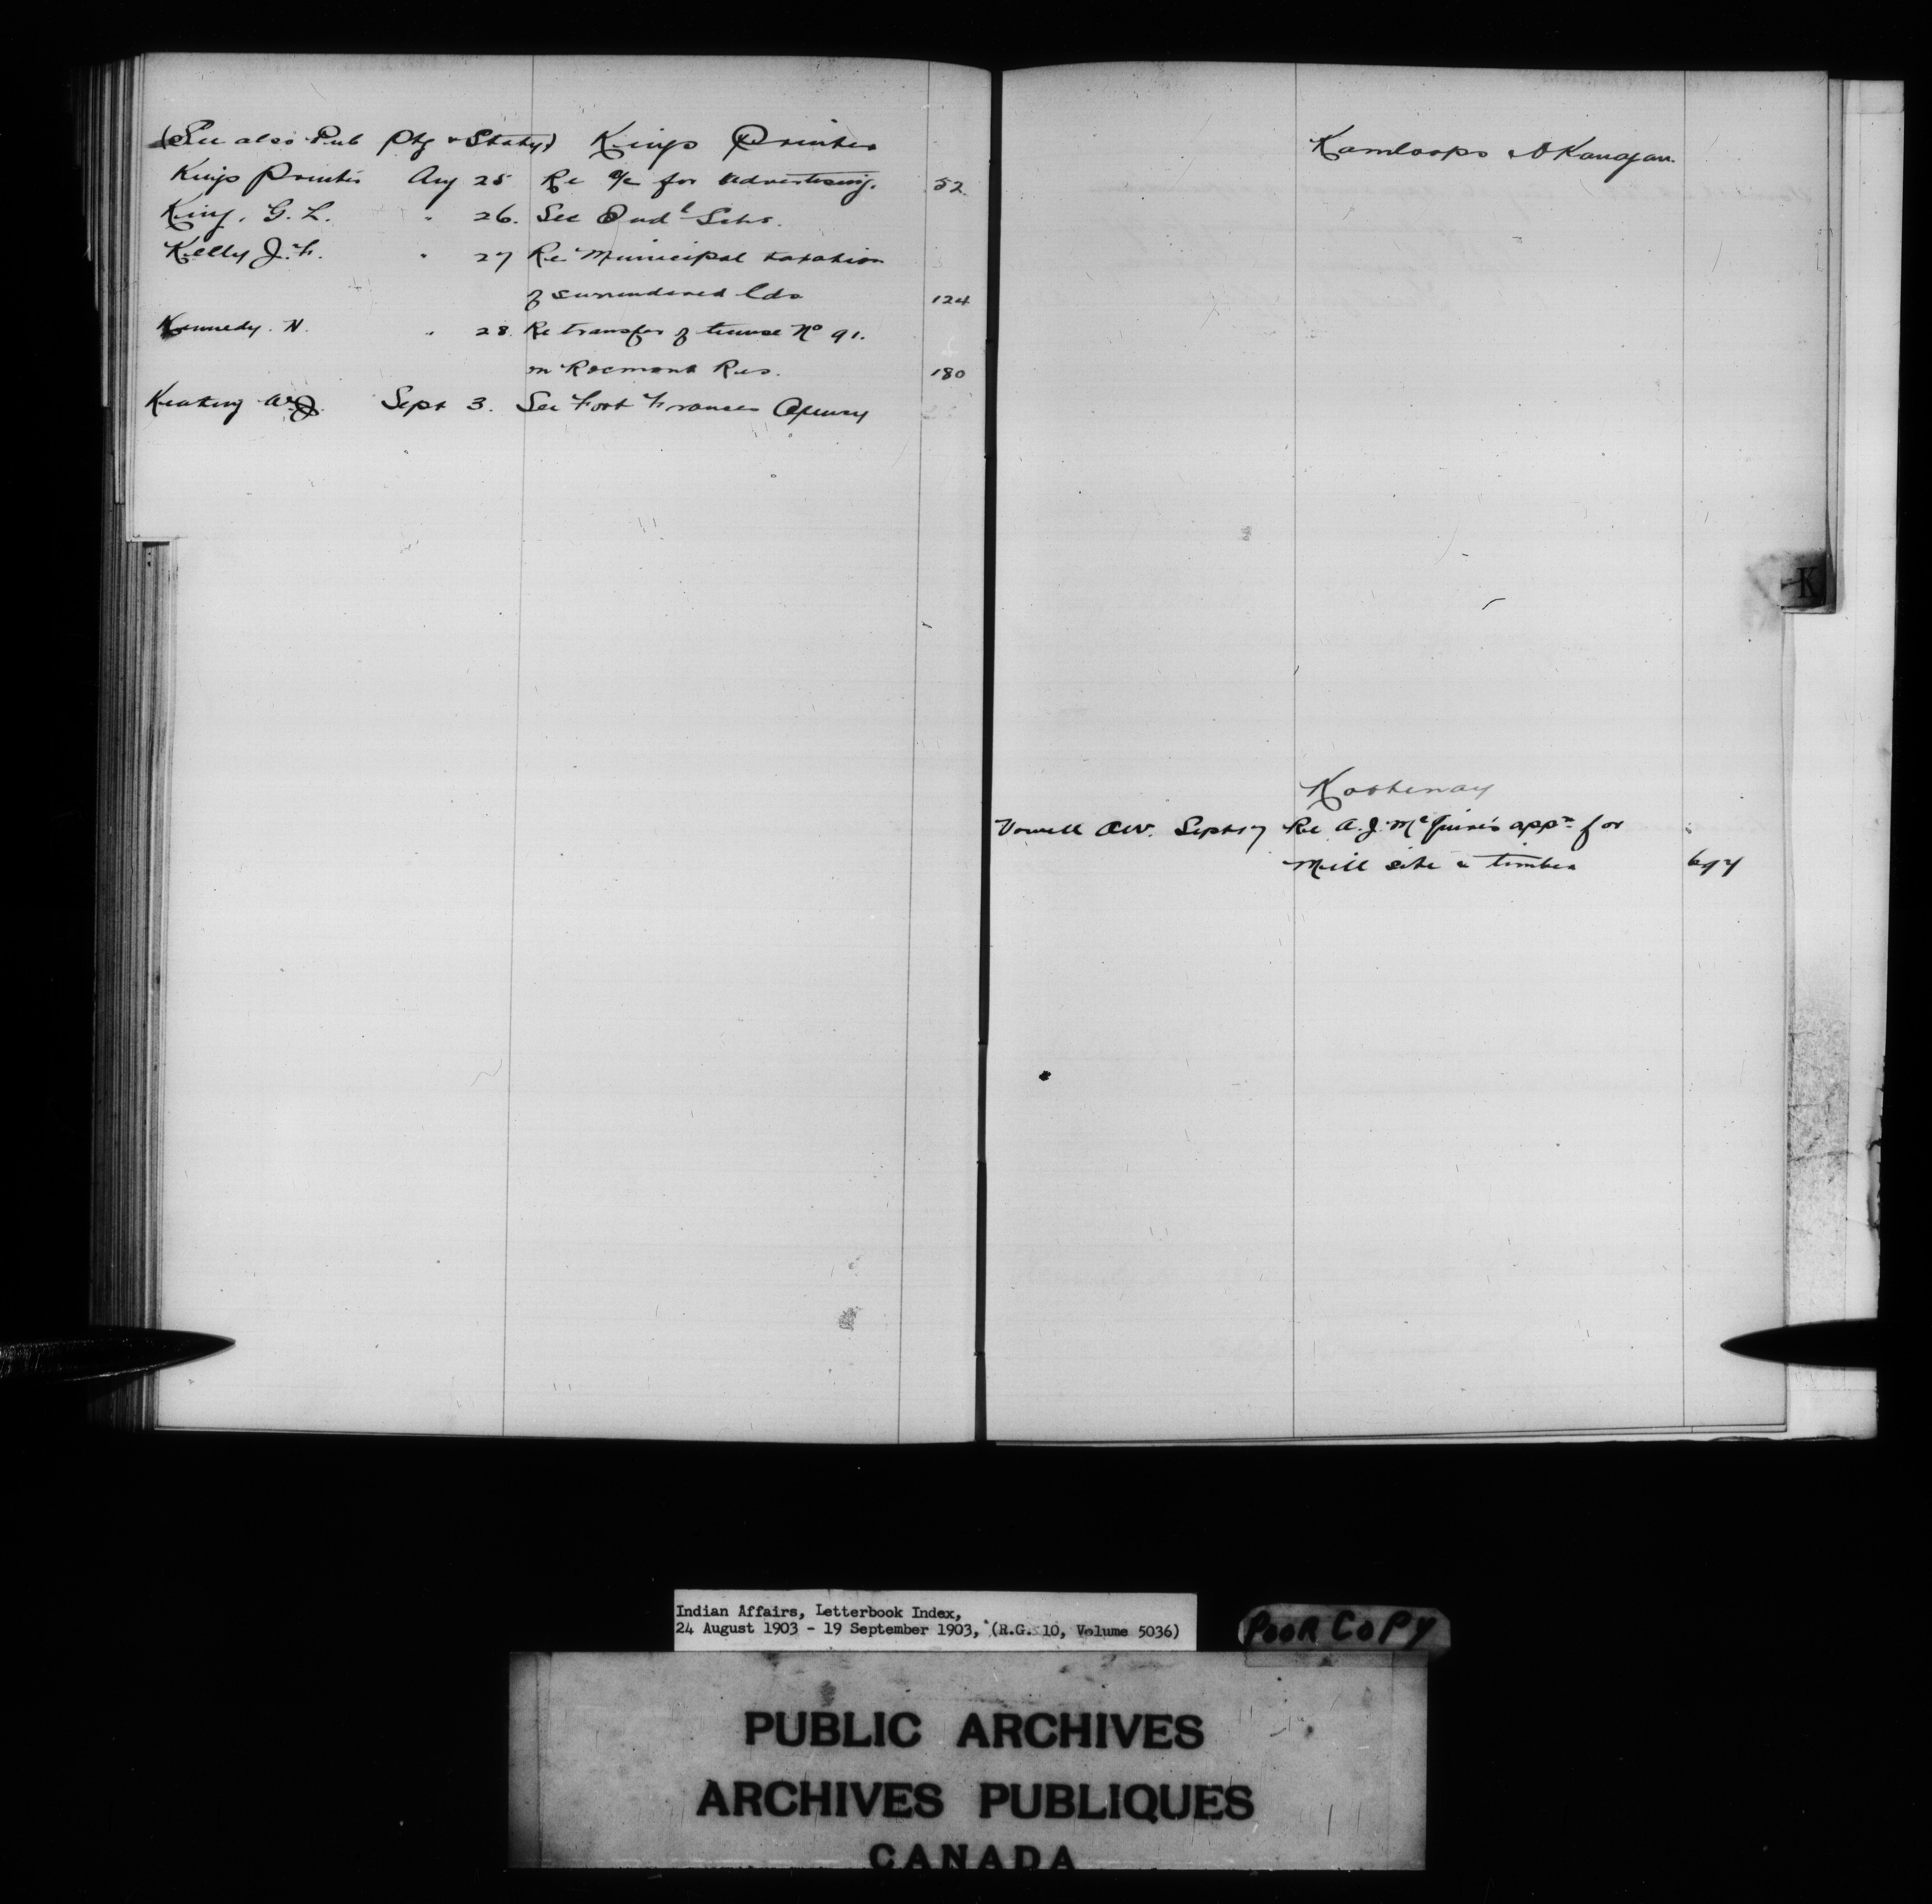 (See also Pub Ptg & Staty) Kings Printer
Kings Printer Aug 25 Re a/c for advertising. 52
King, G. L. " 26. See Ind^l Schs.
Kelly J. F. " 27 Re Municipal taxation
of surrendered lds 124
Kennedy. N. " 28. Re transfer of license No 91.
in Rocmont Res. 180
Keating Sept 3. See Fort Frances Agency
Kamloops & Okanagan.
K
Kootenay
Vowell A.W. Sept 17 Re A. J. McGuire's appn for
Mill site & timber 697
Indian Affairs, Letterbook Index,
24 August 1903 - 19 September 1903, (R.G. 10, Volume 5036)
POOR COPY
PUBLIC ARCHIVES
ARCHIVES PUBLIQUES
CANADA